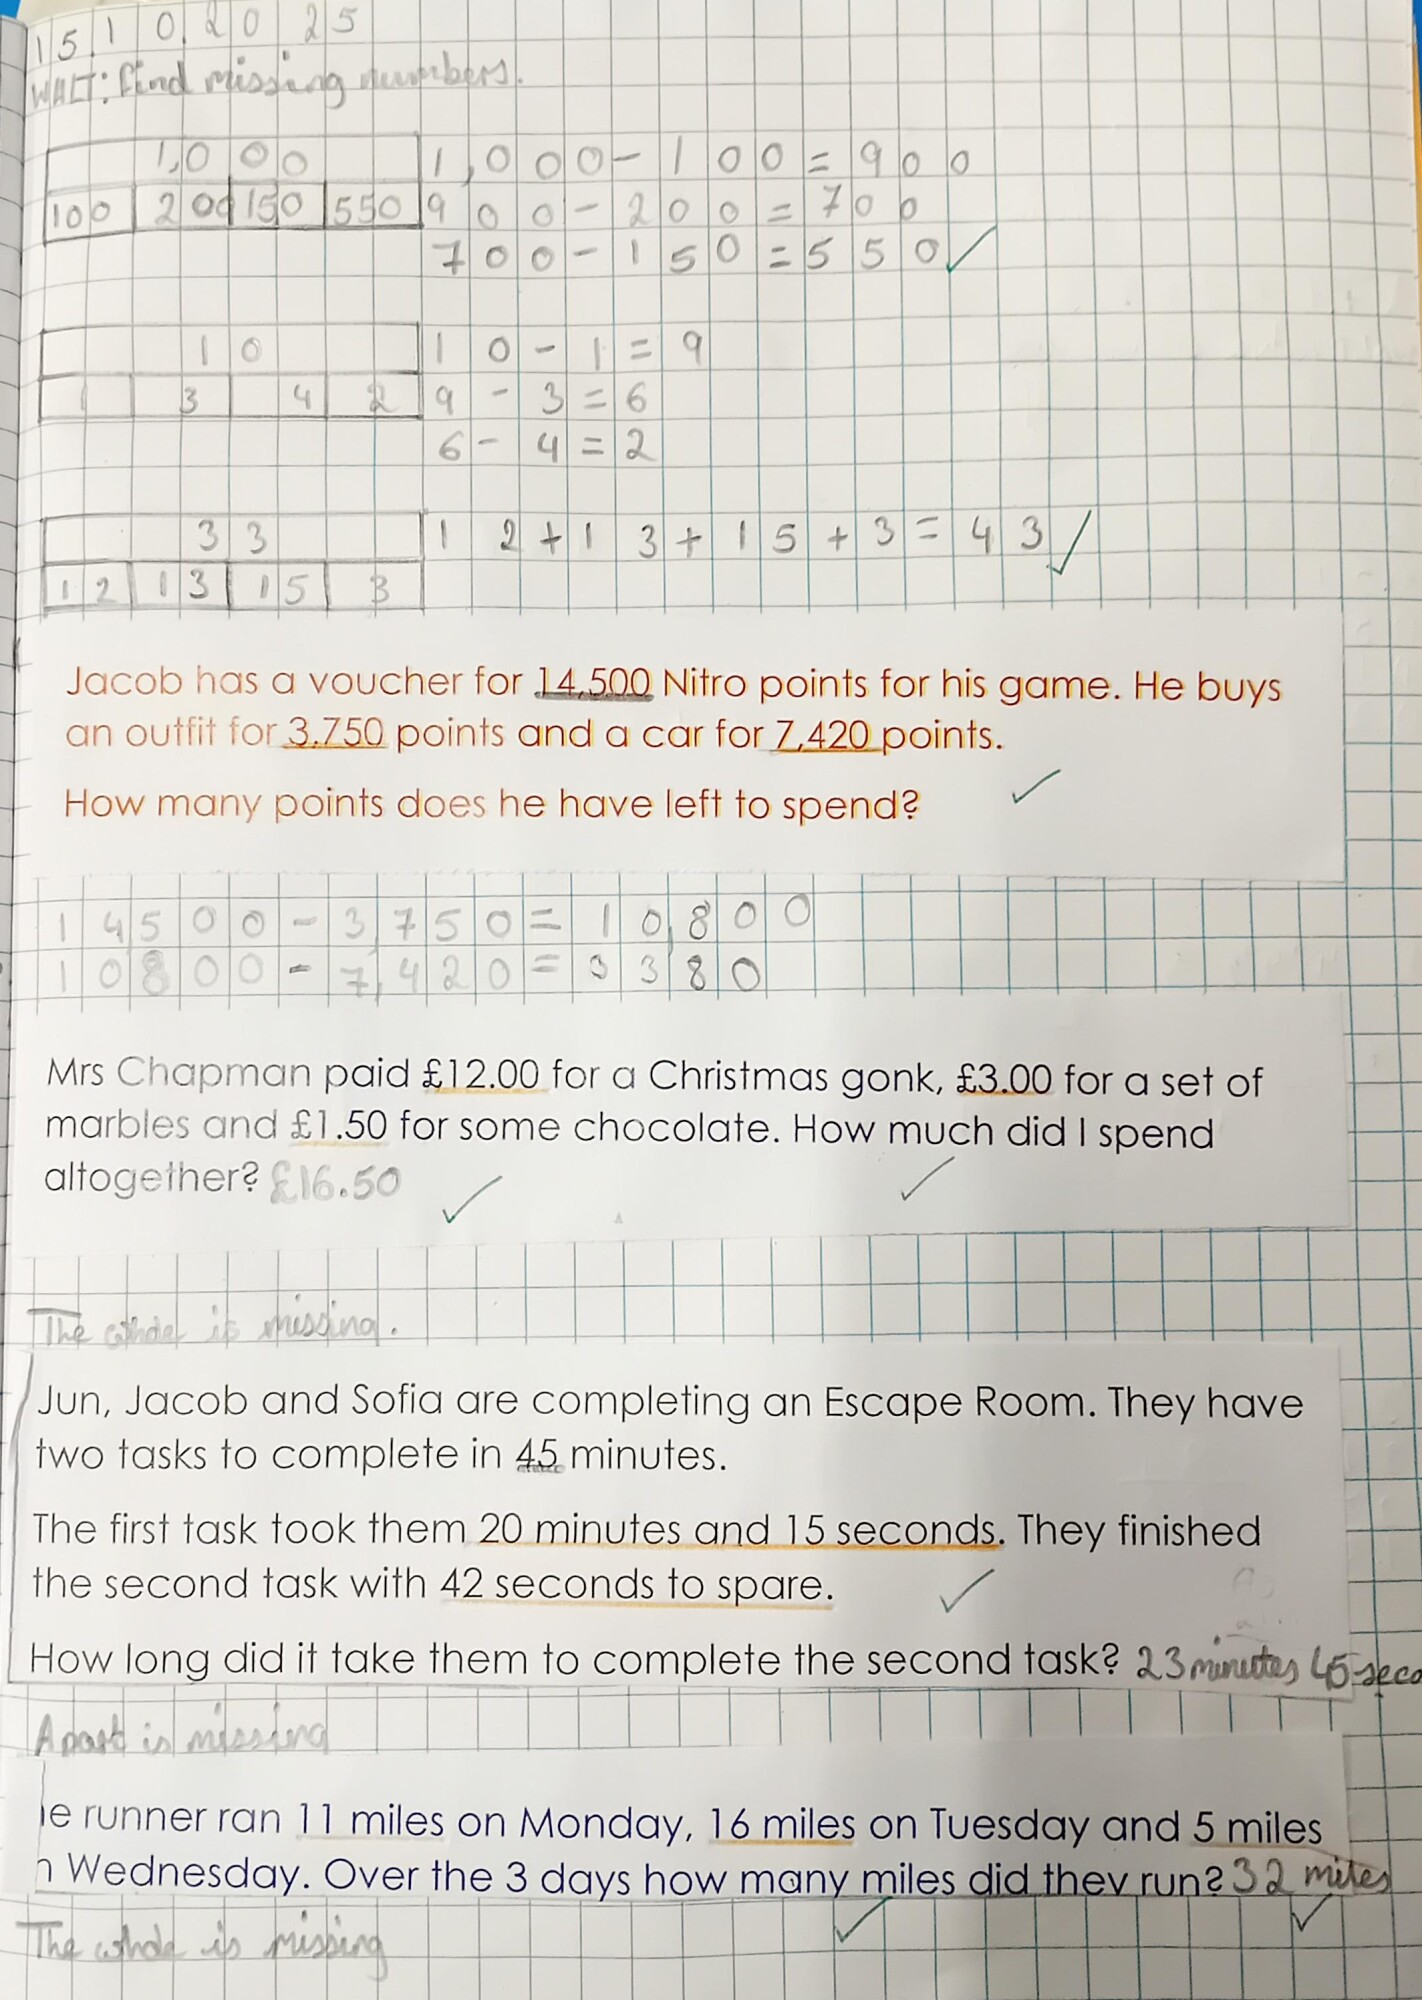 15.10.2025
WALT: find missing numbers.
1,000 1,000 - 100 = 900
100 200 150 550 900 - 200 = 700
700 - 150 = 550
10 10 - 1 = 9
1 3 4 2 9 - 3 = 6
6 - 4 = 2
33 12 + 13 + 15 + 3 = 43
12 13 15 3
Jacob has a voucher for 14,500 Nitro points for his game. He buys
an outfit for 3,750 points and a car for 7,420 points.
How many points does he have left to spend?
14500 - 3,750 = 10,800
10800 - 7,420 = 3380
Mrs Chapman paid £12.00 for a Christmas gonk, £3.00 for a set of
marbles and £1.50 for some chocolate. How much did I spend
altogether? £16.50
The whole is missing.
Jun, Jacob and Sofia are completing an Escape Room. They have
two tasks to complete in 45 minutes.
The first task took them 20 minutes and 15 seconds. They finished
the second task with 42 seconds to spare.
How long did it take them to complete the second task? 23 minutes 45 seco
A part is missing
e runner ran 11 miles on Monday, 16 miles on Tuesday and 5 miles
n Wednesday. Over the 3 days how many miles did they run? 32 miles
The whole is missing